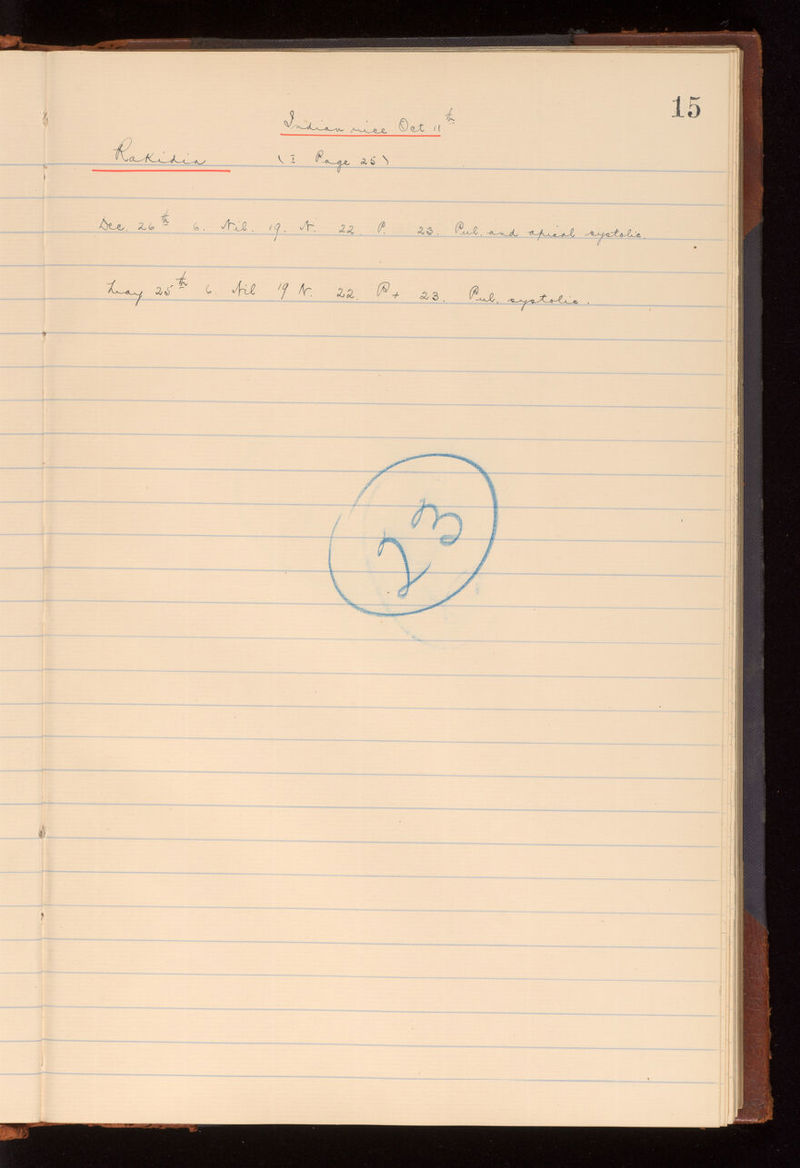 15
Indian rice Oct 11th
Rakidin (I Page 25)
Dec. 26th 6. Nil. 19. N. 22. P. 23. Pul. and apical systolic.
May 25th 6 Nil 19 N. 22. P+ 23. Pul. systolic.
23